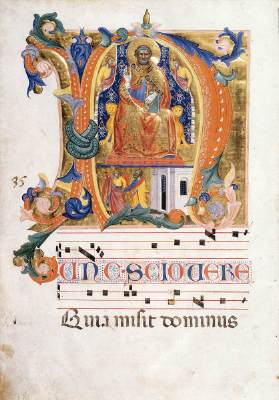 35
NUNC·SCIOVERE
Quia misit dominus